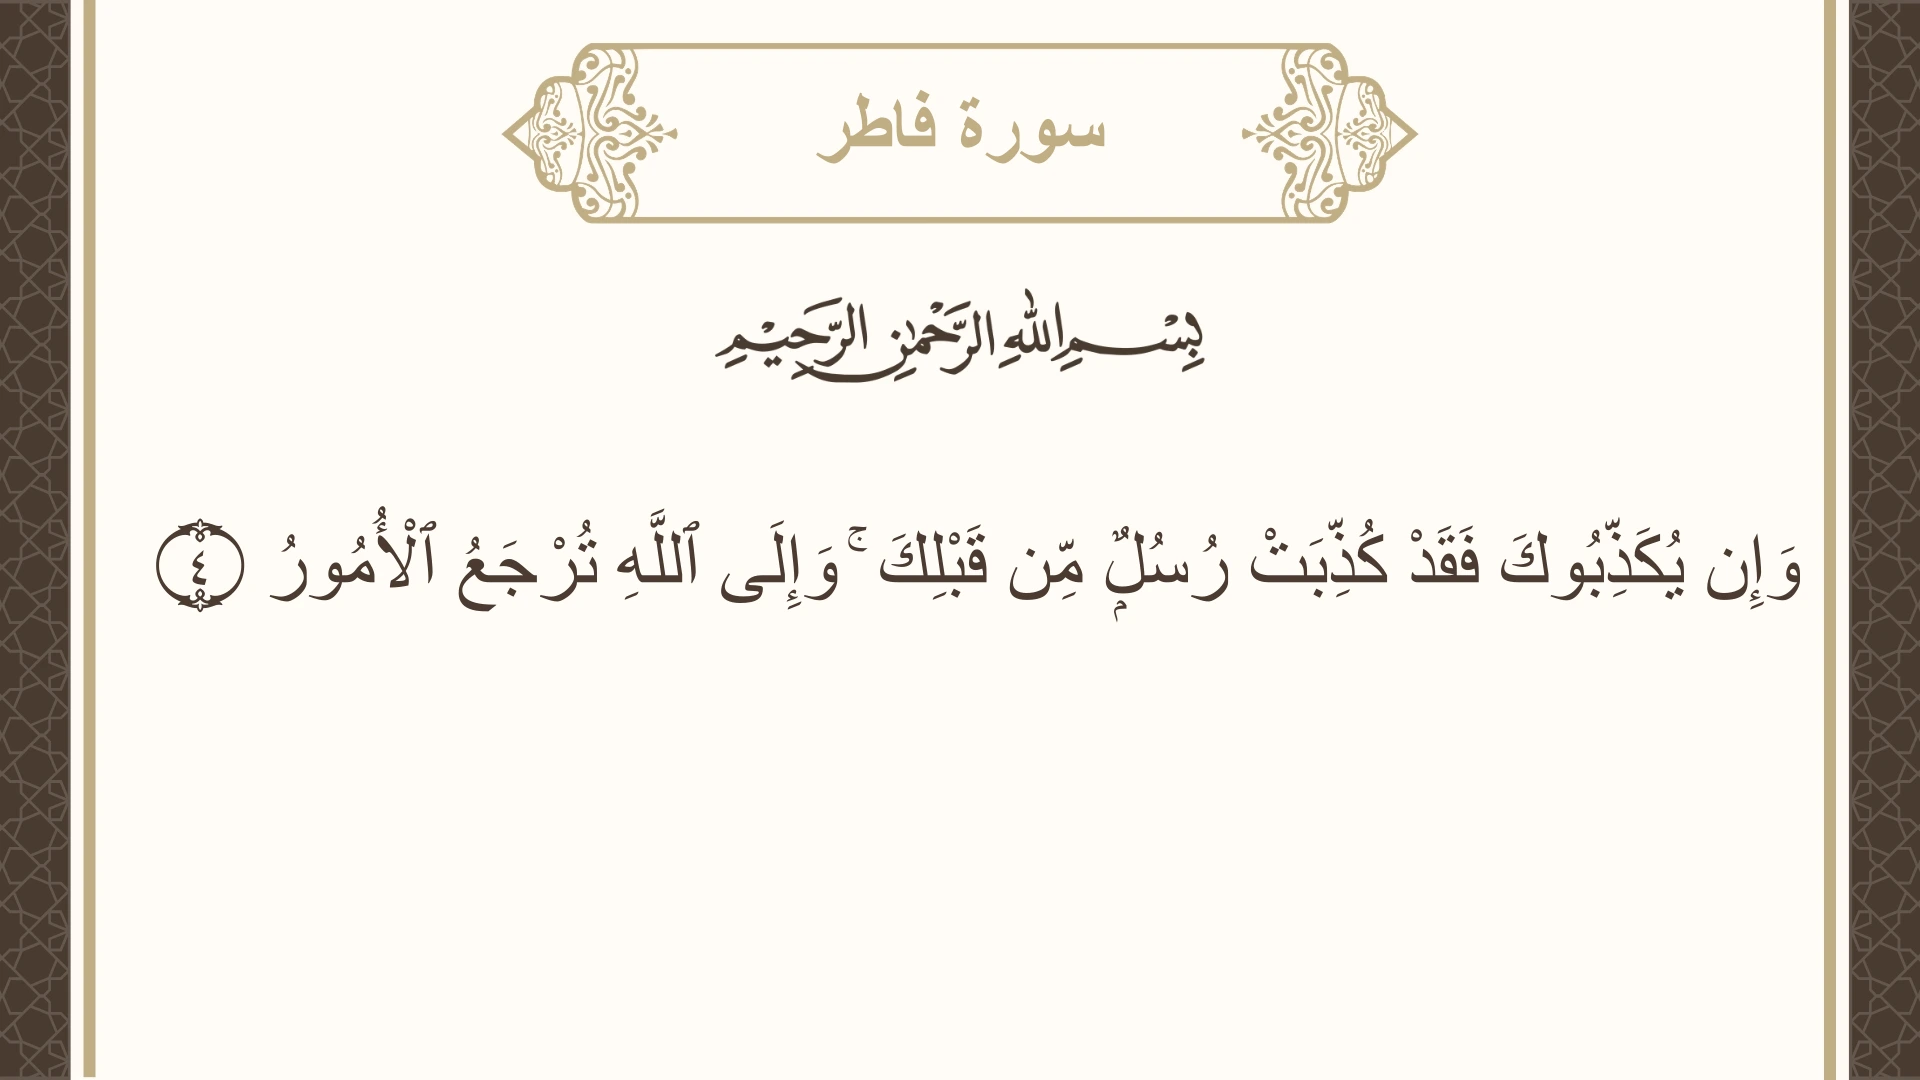 سورة فاطر
بِسْمِ اللهِ الرَّحْمٰنِ الرَّحِيْمِ
وَإِن يُكَذِّبُوكَ فَقَدْ كُذِّبَتْ رُسُلٌۭ مِّن قَبْلِكَ ۚ وَإِلَى ٱللَّهِ تُرْجَعُ ٱلْأُمُورُ ٤